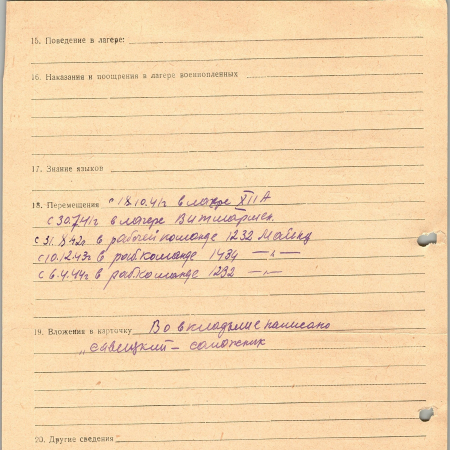 15. Поведение в лагере:
16. Наказания и поощрения в лагере военнопленных
17. Знание языков
18. Перемещения с 18.10.41г в лагере XII A
с 30.7.41г в лагере
с 31.8.42г в рабочей команде 1232
с 10.12.43г в рабкоманде 1434 —"—
с 6.4.44г в рабкоманде 1292 —"—
19. Вложения в карточку Во вкладыше написано
"савецкий - сапожник
20. Другие сведения